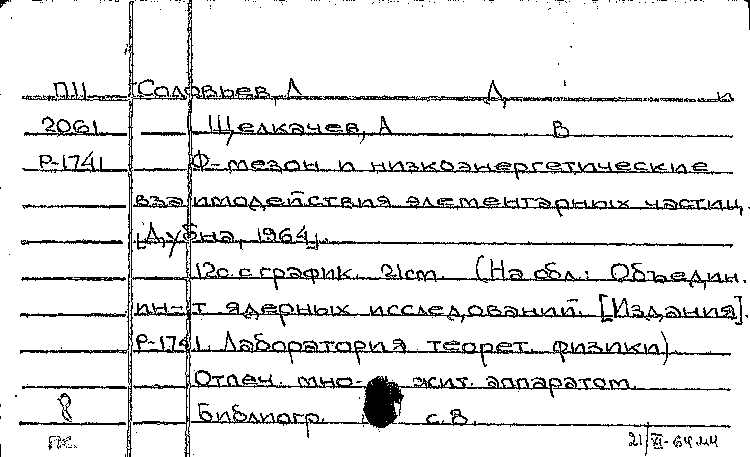 П11 Соловьев, Л Д, и
2061 Щелкачев, А В
Р-1741 Ф-мезон и низкоэнергетические
взаимодействия элементарных частиц.
[Дубна, 1964].
12с. с график. 21см. (На обл.: Объедин.
ин-т ядерных исследований. [Издания].
Р-1741. Лаборатория теорет. физики)
Отпеч. мно- жит. аппаратом.
8 Библиогр. с. 8.
21/XI-64